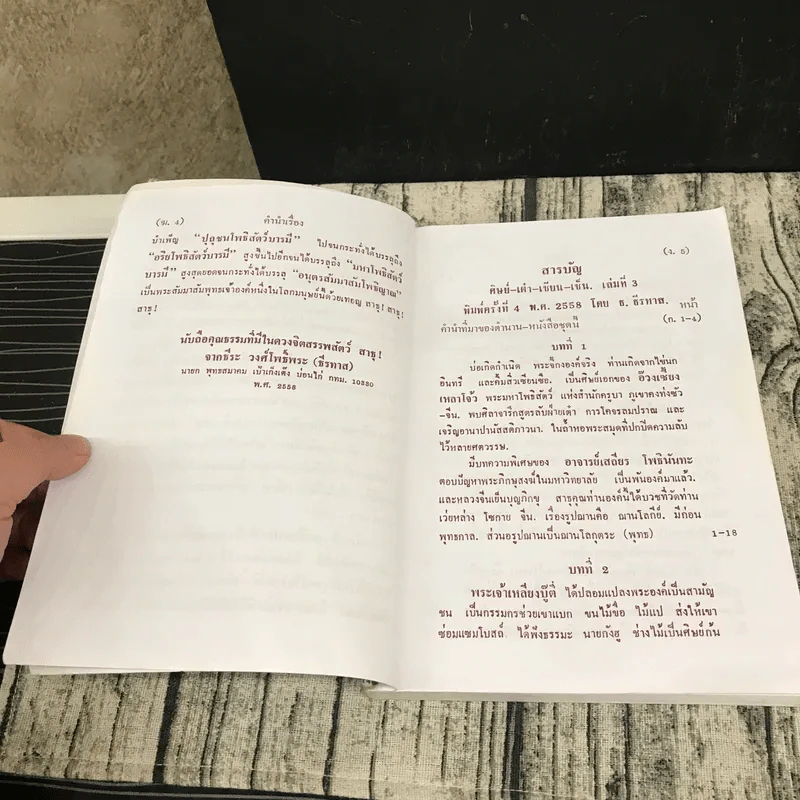 (ฆ. 4) คำนำเรื่อง
บำเพ็ญ "ปุถุชนโพธิสัตว์บารมี" ไปจนกระทั่งได้บรรลุถึง
"อริยโพธิสัตว์บารมี" สูงขึ้นไปอีกจนได้บรรลุถึง "มหาโพธิสัตว์
บารมี" สูงสุดยอดจนกระทั่งได้บรรลุ "อนุตรสัมมาสัมโพธิญาณ"
เป็นพระสัมมาสัมพุทธเจ้าองค์หนึ่งในโลกมนุษย์นี้ด้วยเทอญ สาธุ! สาธุ!
สาธุ!
นับถือคุณธรรมที่มีในดวงจิตสรรพสัตว์ สาธุ!
จากธีระ วงศ์โพธิ์พระ (ธีรทาส)
นายก พุทธสมาคม เป้าเก็งเต็ง บ่อนไก่ กทม. 10330
พ.ศ. 2558
(ง. 5)
สารบัญ
ศิษย์-เต๋า-เซียน-เซ็น. เล่มที่ 3
พิมพ์ครั้งที่ 4 พ.ศ. 2558 โดย ธ. ธีรทาส. หน้า
คำนำที่มาของตำนาน-หนังสือชุดนี้ (ก. 1-4)
บทที่ 1
บ่อเกิดกำเนิด พระจี้กงองค์จริง ท่านเกิดจากไข่นก
อินทรี และคัมภีร์เซียนซือ. เป็นศิษย์เอกของ อ๊วงเซี้ยง
เหลาโจ้ว พระมหาโพธิสัตว์ แห่งสำนักครูบา ภูเขาคงท่งซัว
-จีน. พบศิลาจารึกสูตรลับฝ่ายเต๋า การโคจรลมปราณ และ
เจริญอานาปานัสสติภาวนา. ในถ้ำหอพระสมุดที่ปกปิดความลับ
ไว้หลายศตวรรษ.
มีบทความพิเศษของ อาจารย์เสถียร โพธินันทะ
ตอบปัญหาพระภิกษุสงฆ์ในมหาวิทยาลัย เป็นพันองค์มาแล้ว.
และหลวงจีนเย็นบุญภิกขุ สาธุคุณท่านองค์นี้ได้บวชที่วัดท่าน
เว่ยหล่าง โซกาย จีน. เรื่องรูปฌานคือ ฌานโลกีย์. มีก่อน
พุทธกาล. ส่วนอรูปฌานเป็นฌานโลกุตระ (พุทธ) 1-18
บทที่ 2
พระเจ้าเหลียงบู๊ตี่ ได้ปลอมแปลงพระองค์เป็นสามัญ
ชน เป็นกรรมกรช่วยเขาแบก ขนไม้ขื่อ ไม้แป ส่งให้เขา
ซ่อมแซมโบสถ์ ได้ฟังธรรมะ นายกังฮู ช่างไม้เป็นศิษย์ก้น